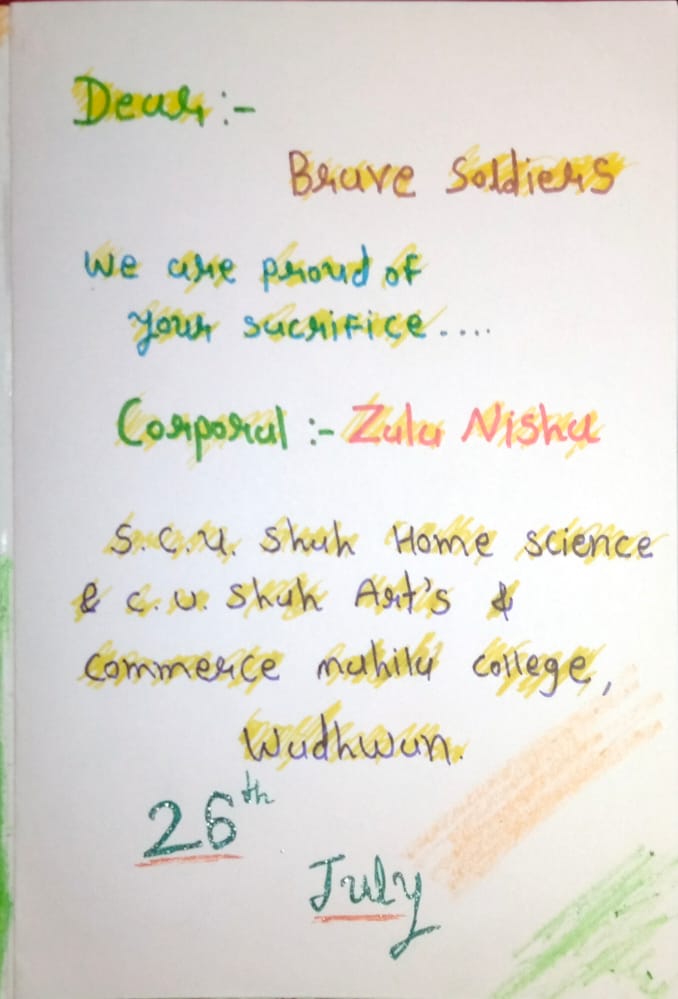 Dear :-
Brave Soldiers
We are proud of
your sacrifice....
Corporal :- Zala Nisha
S.C.U. Shah Home science
& C.U. Shah Art's &
commerce mahila college,
Wadhwan.
26th
July